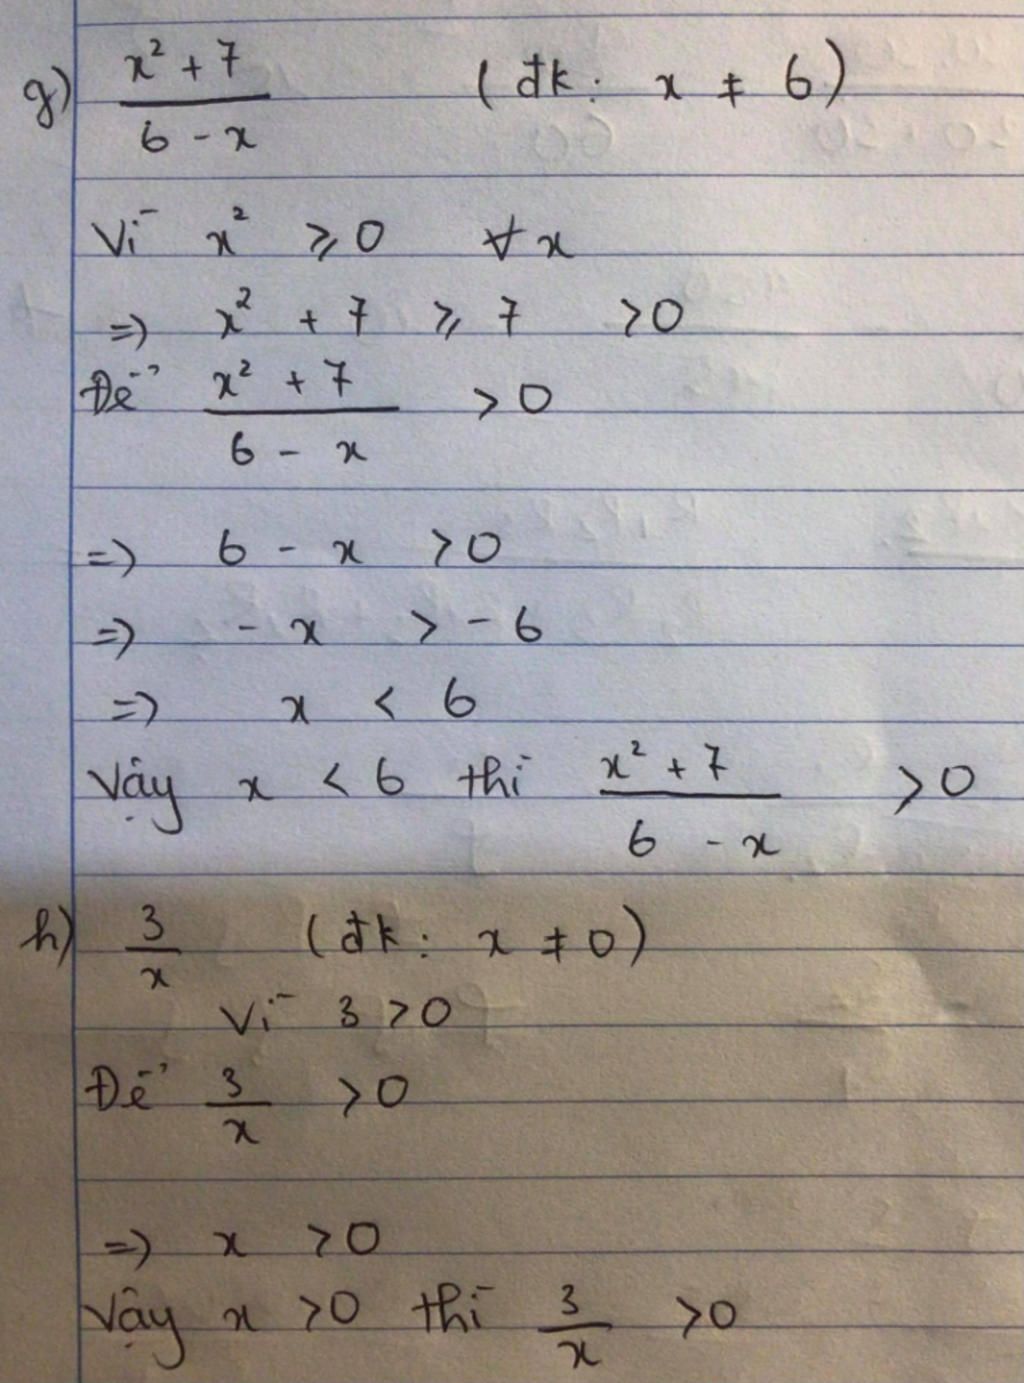 g) \frac{x² + 7}{6 - x} (đk: x ≠ 6)
Vì x² ⩾ 0 ∀x
=> x² + 7 ⩾ 7 > 0
Để \frac{x² + 7}{6 - x} > 0
=> 6 - x > 0
=> - x > - 6
=> x < 6
Vậy x < 6 thì \frac{x² + 7}{6 - x} > 0
h) \frac{3}{x} (đk: x ≠ 0)
Vì 3 > 0
Để \frac{3}{x} > 0
=> x > 0
Vậy x > 0 thì \frac{3}{x} > 0